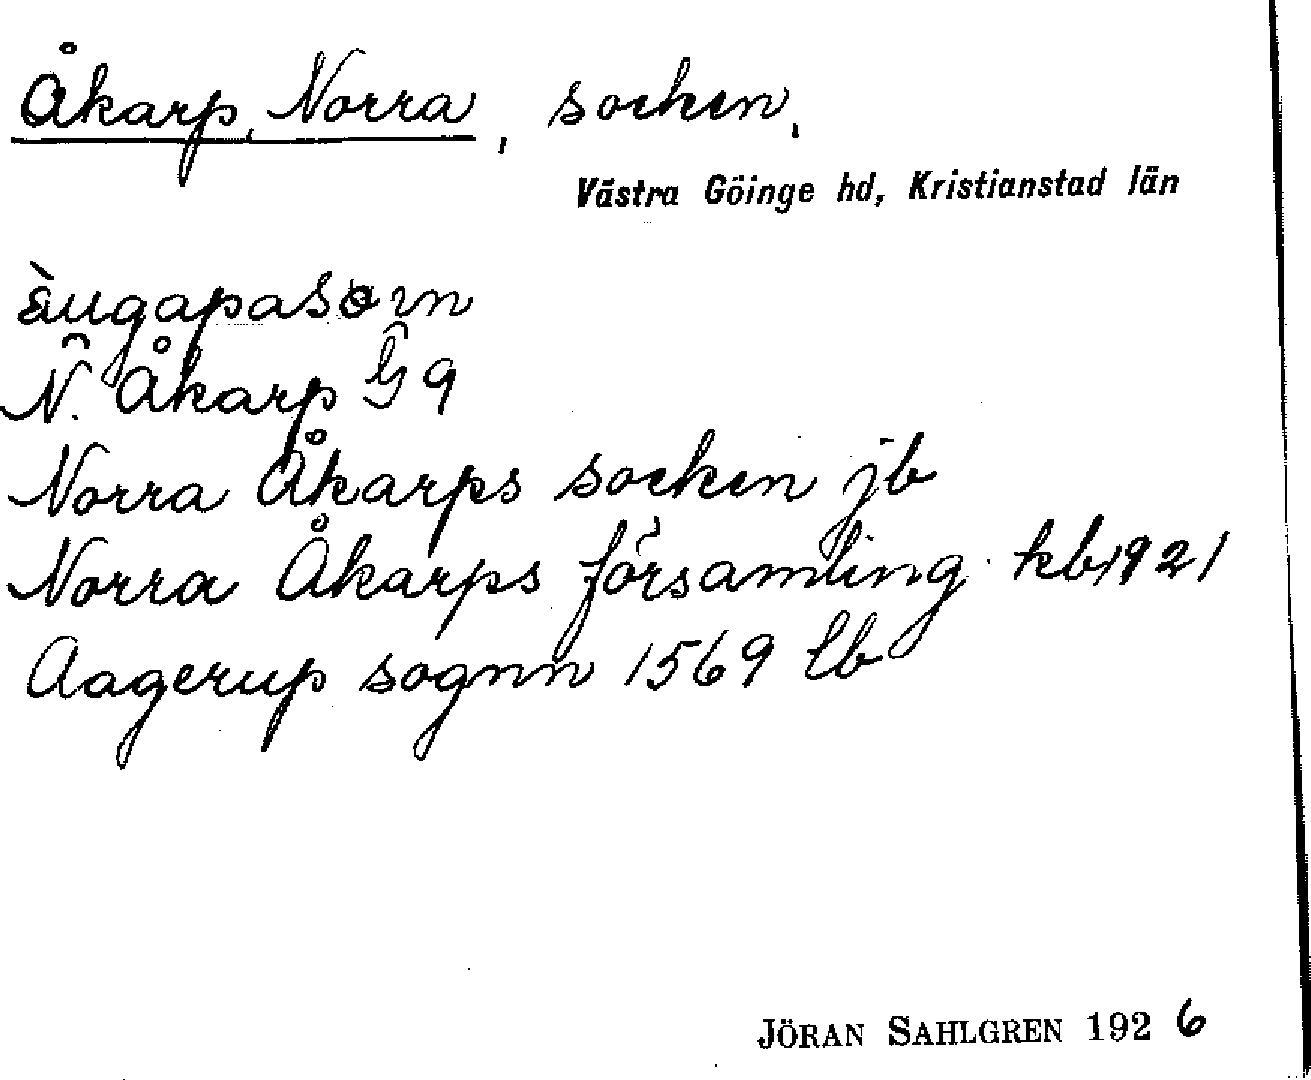 Åkarp, Norra, socken,
Västra Göinge hd, Kristianstad län
N. Åkarp G 9
Norra Åkarps socken jb
Norra Åkarps församling kb 1921
Aagerup sognn 1569 lb
JÖRAN SAHLGREN 1926